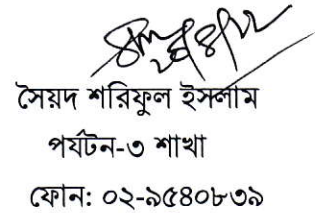 সৈয়দ শরিফুল ইসলাম
পর্যটন-৩ শাখা
ফোন: ০২-৯৫৪০৮৩৯